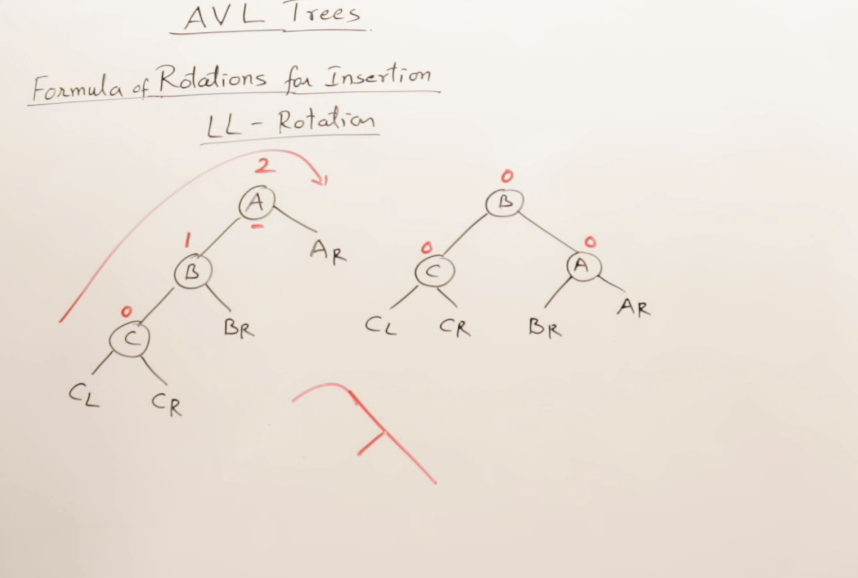 AVL Trees
Formula of Rotations for Insertion
LL - Rotation
2
A
AR
1
B
BR
0
C
CL CR
0
B
0
C
CL CR
0
A
BR AR